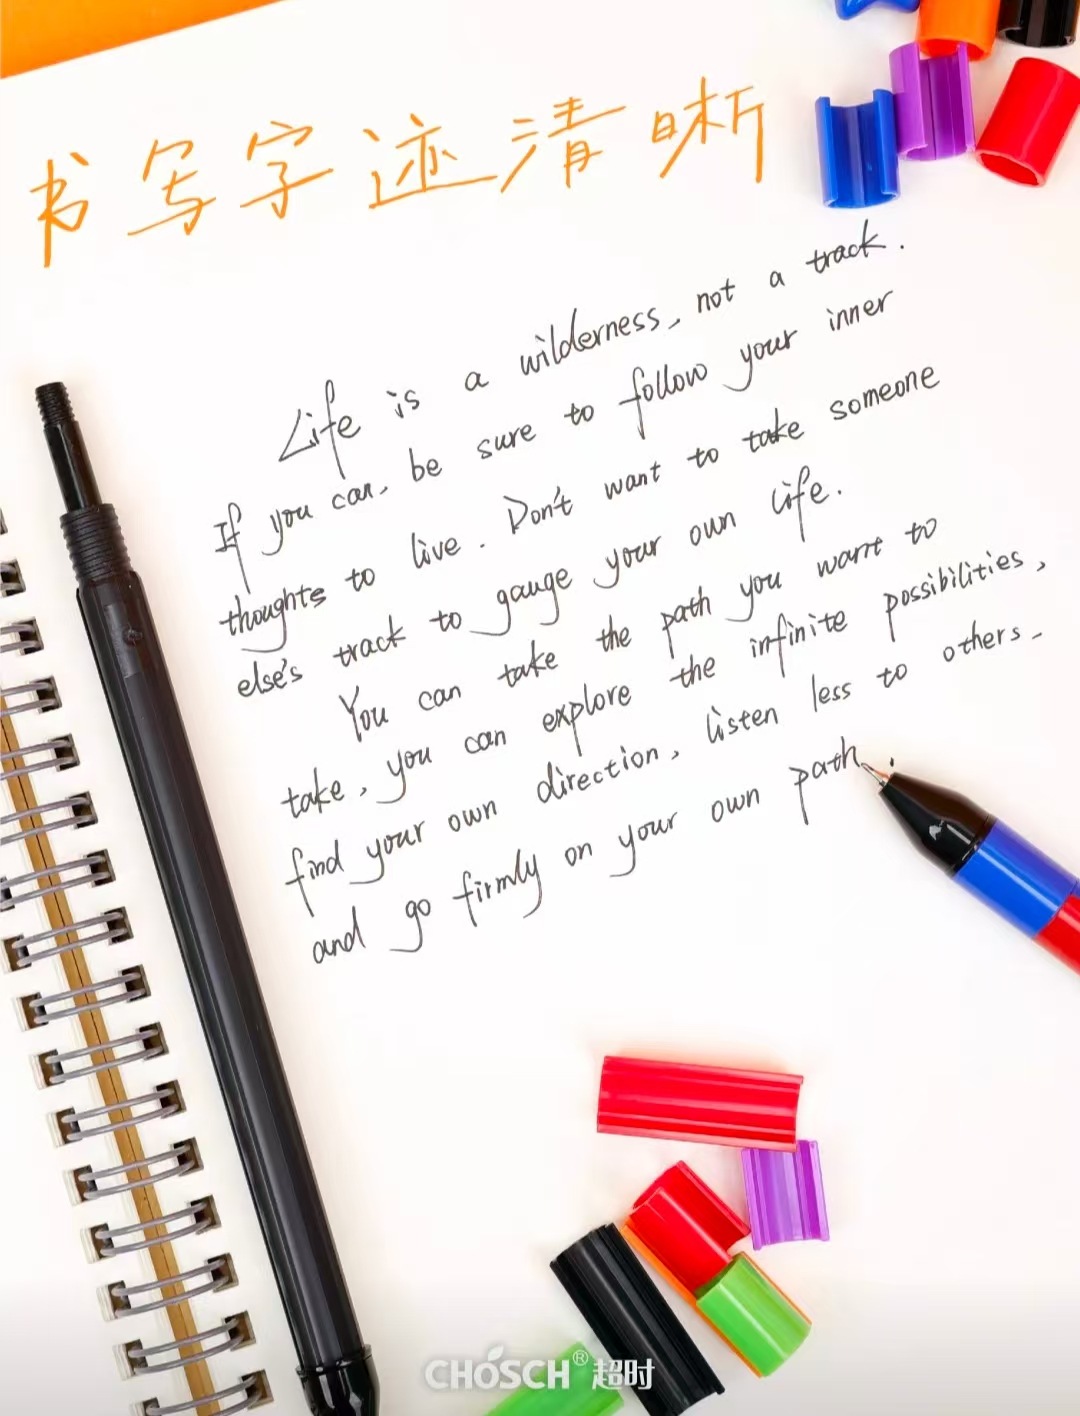 书写字迹清晰
Life is a wilderness, not a track.
If you can, be sure to follow your inner
thoughts to live. Don't want to take someone
else's track to gauge your own life.
You can take the path you want to
take, you can explore the infinite possibilities,
find your own direction, listen less to others.
and go firmly on your own path.
CHOSCH® 超时